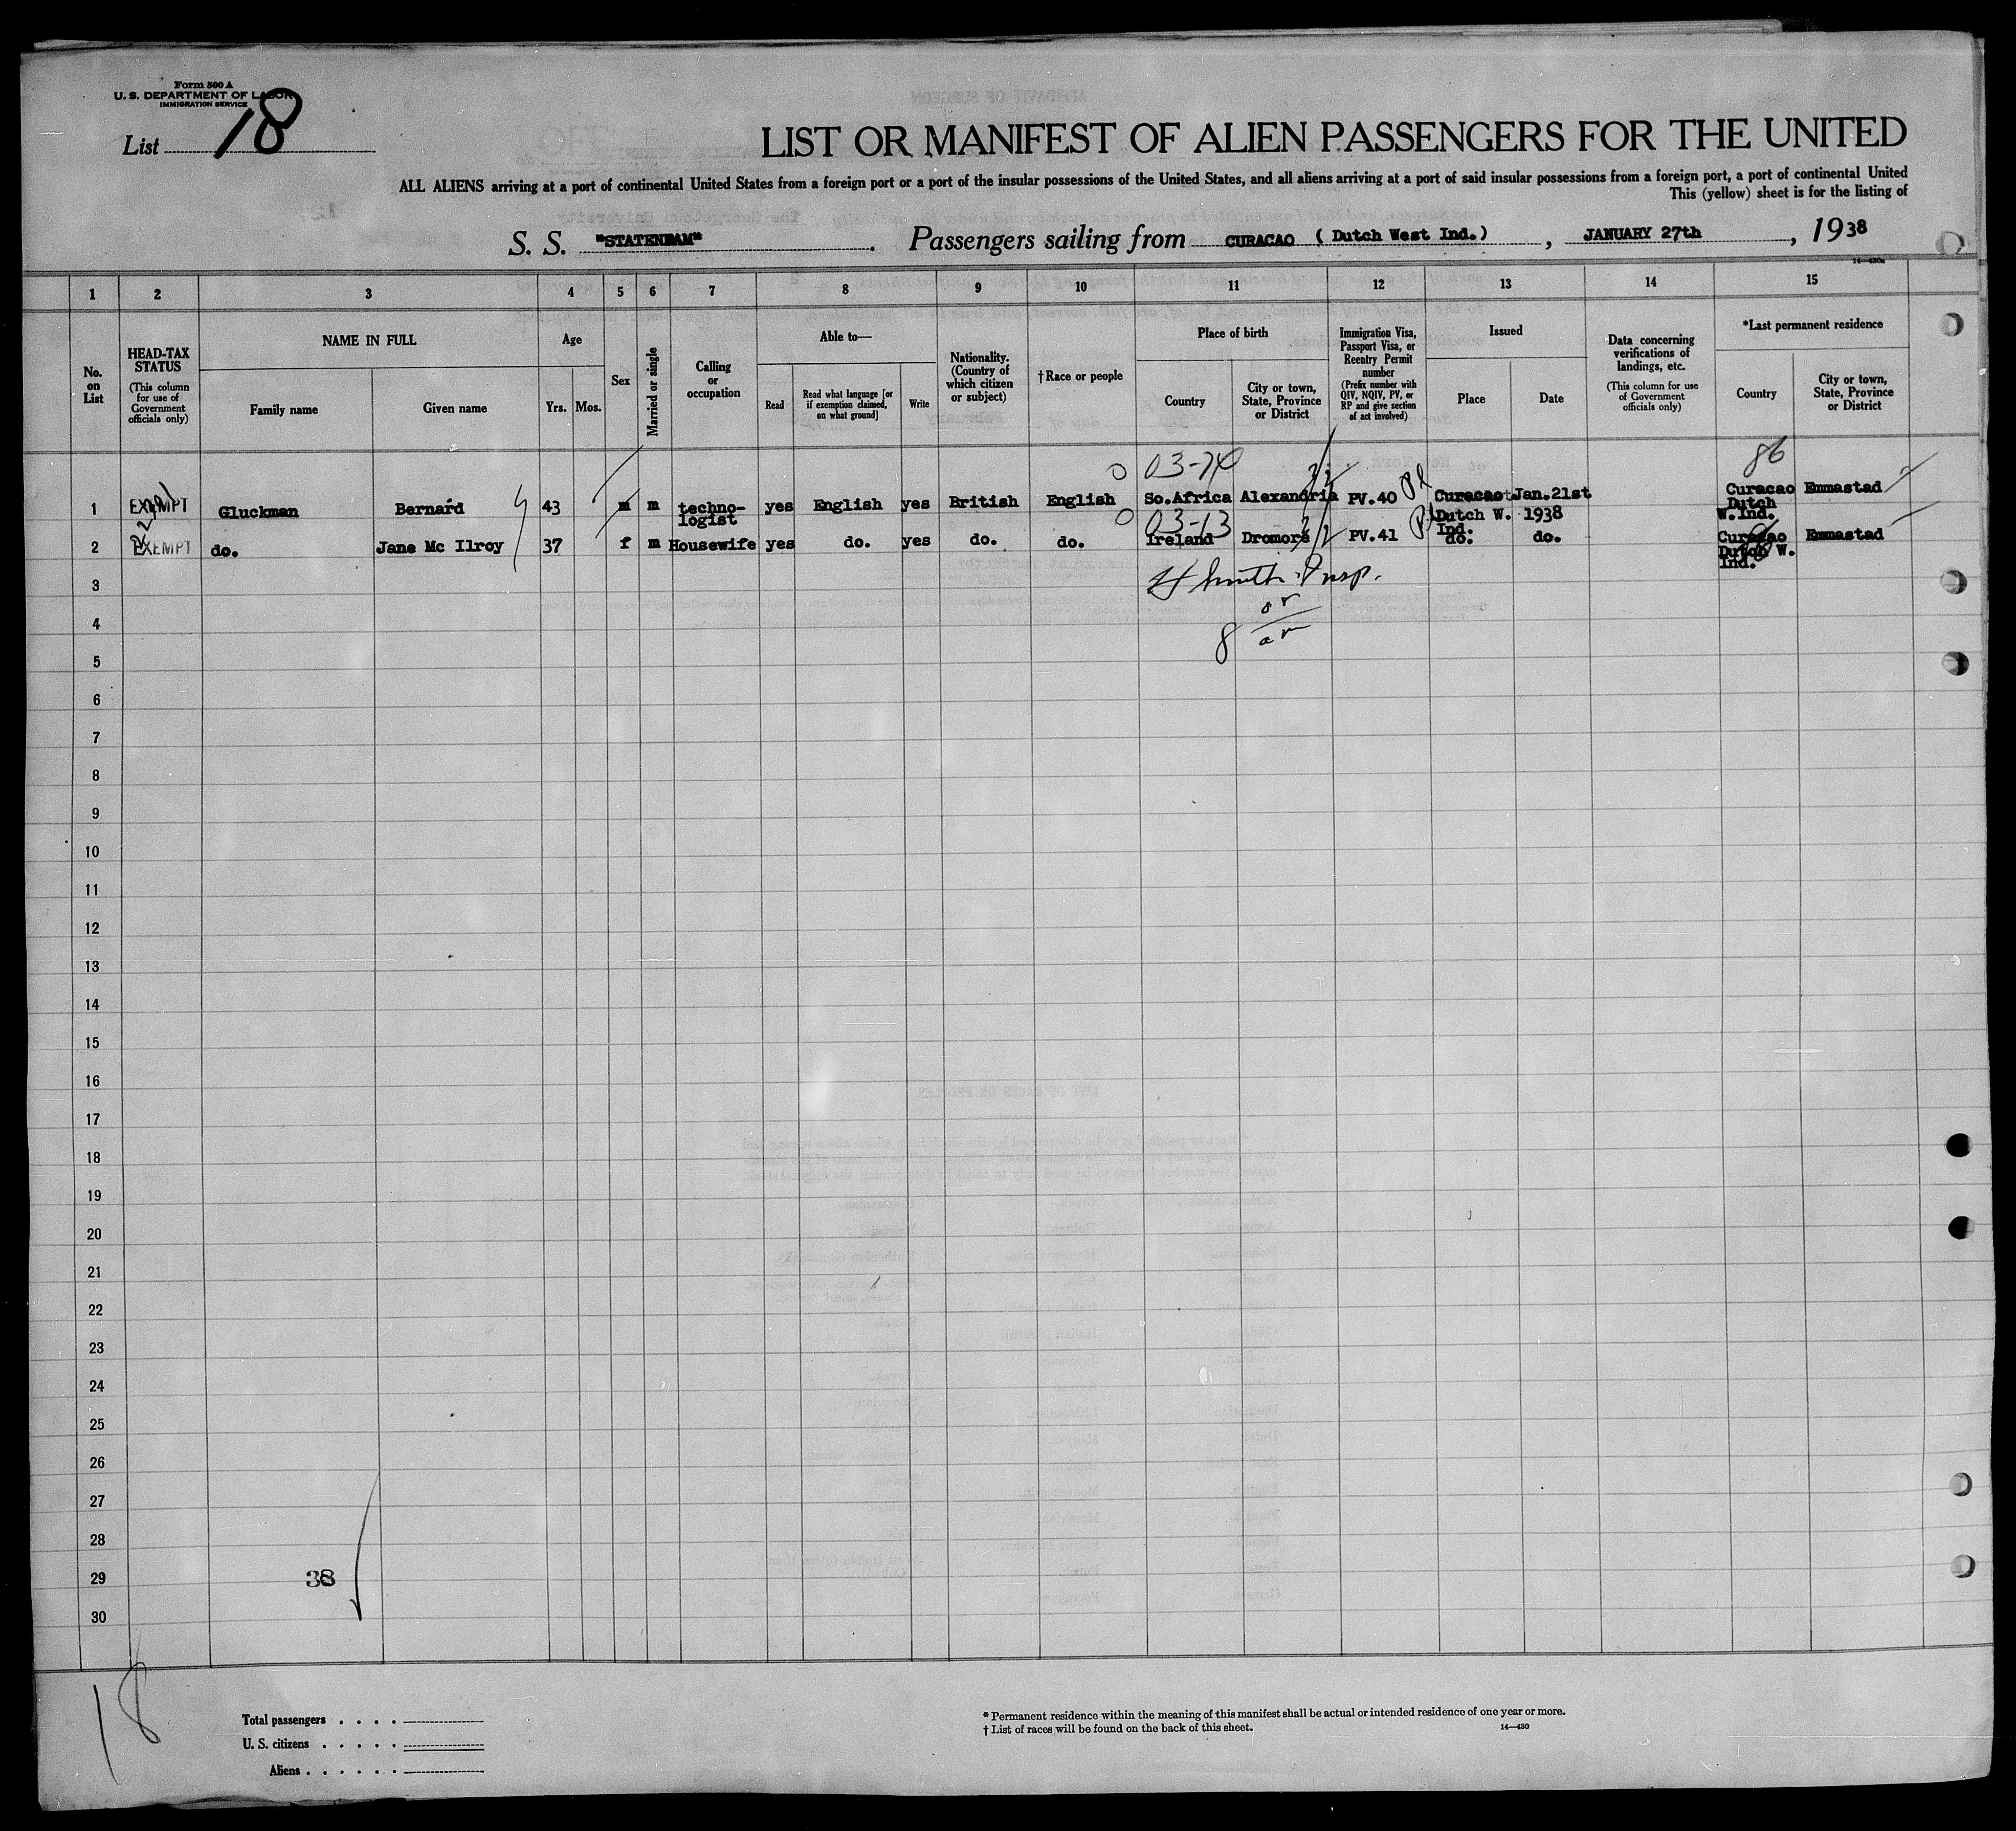 Form 500 A
U. S. DEPARTMENT OF LABOR
IMMIGRATION SERVICE
List 18
LIST OR MANIFEST OF ALIEN PASSENGERS FOR THE UNITED
ALL ALIENS arriving at a port of continental United States from a foreign port or a port of the insular possessions of the United States, and all aliens arriving at a port of said insular possessions from a foreign port, a port of continental United
This (yellow) sheet is for the listing of
S. S. "STATENDAM". Passengers sailing from CURACAO ( Dutch West Ind.) , JANUARY 27th , 1938
14—430a
1 2 3 4 5 6 7 8 9 10 11 12 13 14 15
No. on List
HEAD-TAX STATUS
(This column for use of Government officials only)
NAME IN FULL
Family name
Given name
Age
Yrs.
Mos.
Sex
Married or single
Calling or occupation
Able to—
Read
Read what language [or if exemption claimed, on what ground]
Write
Nationality. (Country of which citizen or subject)
†Race or people
Place of birth
Country
City or town, State, Province or District
Immigration Visa, Passport Visa, or Reentry Permit number
(Prefix number with QIV, NQIV, PV, or RP and give section of act involved)
Issued
Place
Date
Data concerning verifications of landings, etc.
(This column for use of Government officials only)
*Last permanent residence
Country
City or town, State, Province or District
03-74
86
1 EXEMPT Gluckman Bernard 43 m m techno-logist yes English yes British English So.Africa Alexandria PV.40 Curacao Dutch W. Ind. Jan.21st 1938 Curacao Dutch W.Ind. Emmastad
03-13
2 EXEMPT do. Jane Mc Ilroy 37 f m Housewife yes do. yes do. do. Ireland Dromore PV.41 do. do. Curacao Dutch W. Ind. Emmastad
3
4
8
5
6
7
8
9
10
11
12
13
14
15
16
17
18
19
20
21
22
23
24
25
26
27
28
29 38
30
18
Total passengers . . . .
U. S. citizens . . . . .
Aliens . . . . . .
* Permanent residence within the meaning of this manifest shall be actual or intended residence of one year or more.
† List of races will be found on the back of this sheet.
14—430